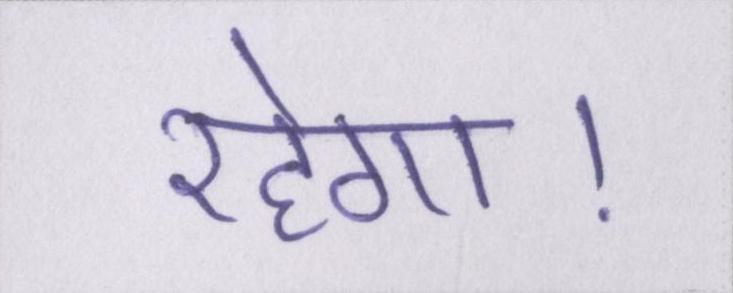 रहेगा!